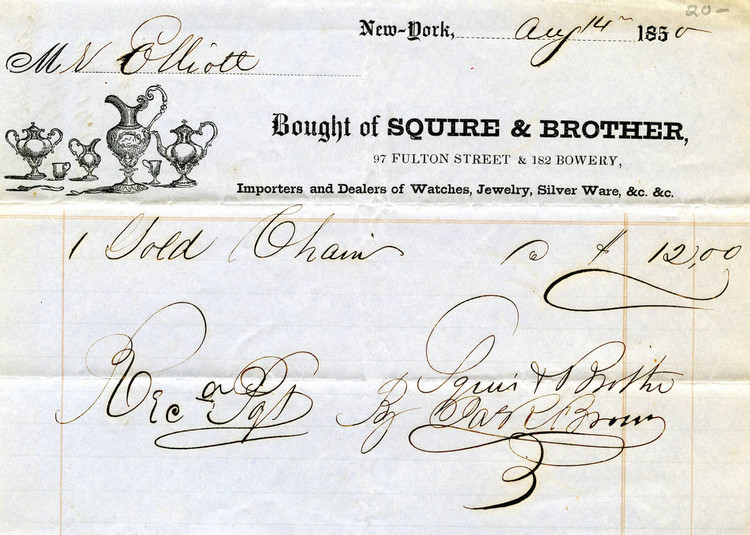 20-
New-York, Aug 14th 1850
Mr Elliott
Bought of SQUIRE & BROTHER,
97 FULTON STREET & 182 BOWERY,
Importers and Dealers of Watches, Jewelry, Silver Ware, &c. &c.
1 Gold Chain $ 12,00
Rec d Pyt Squire & Brother
By Brown